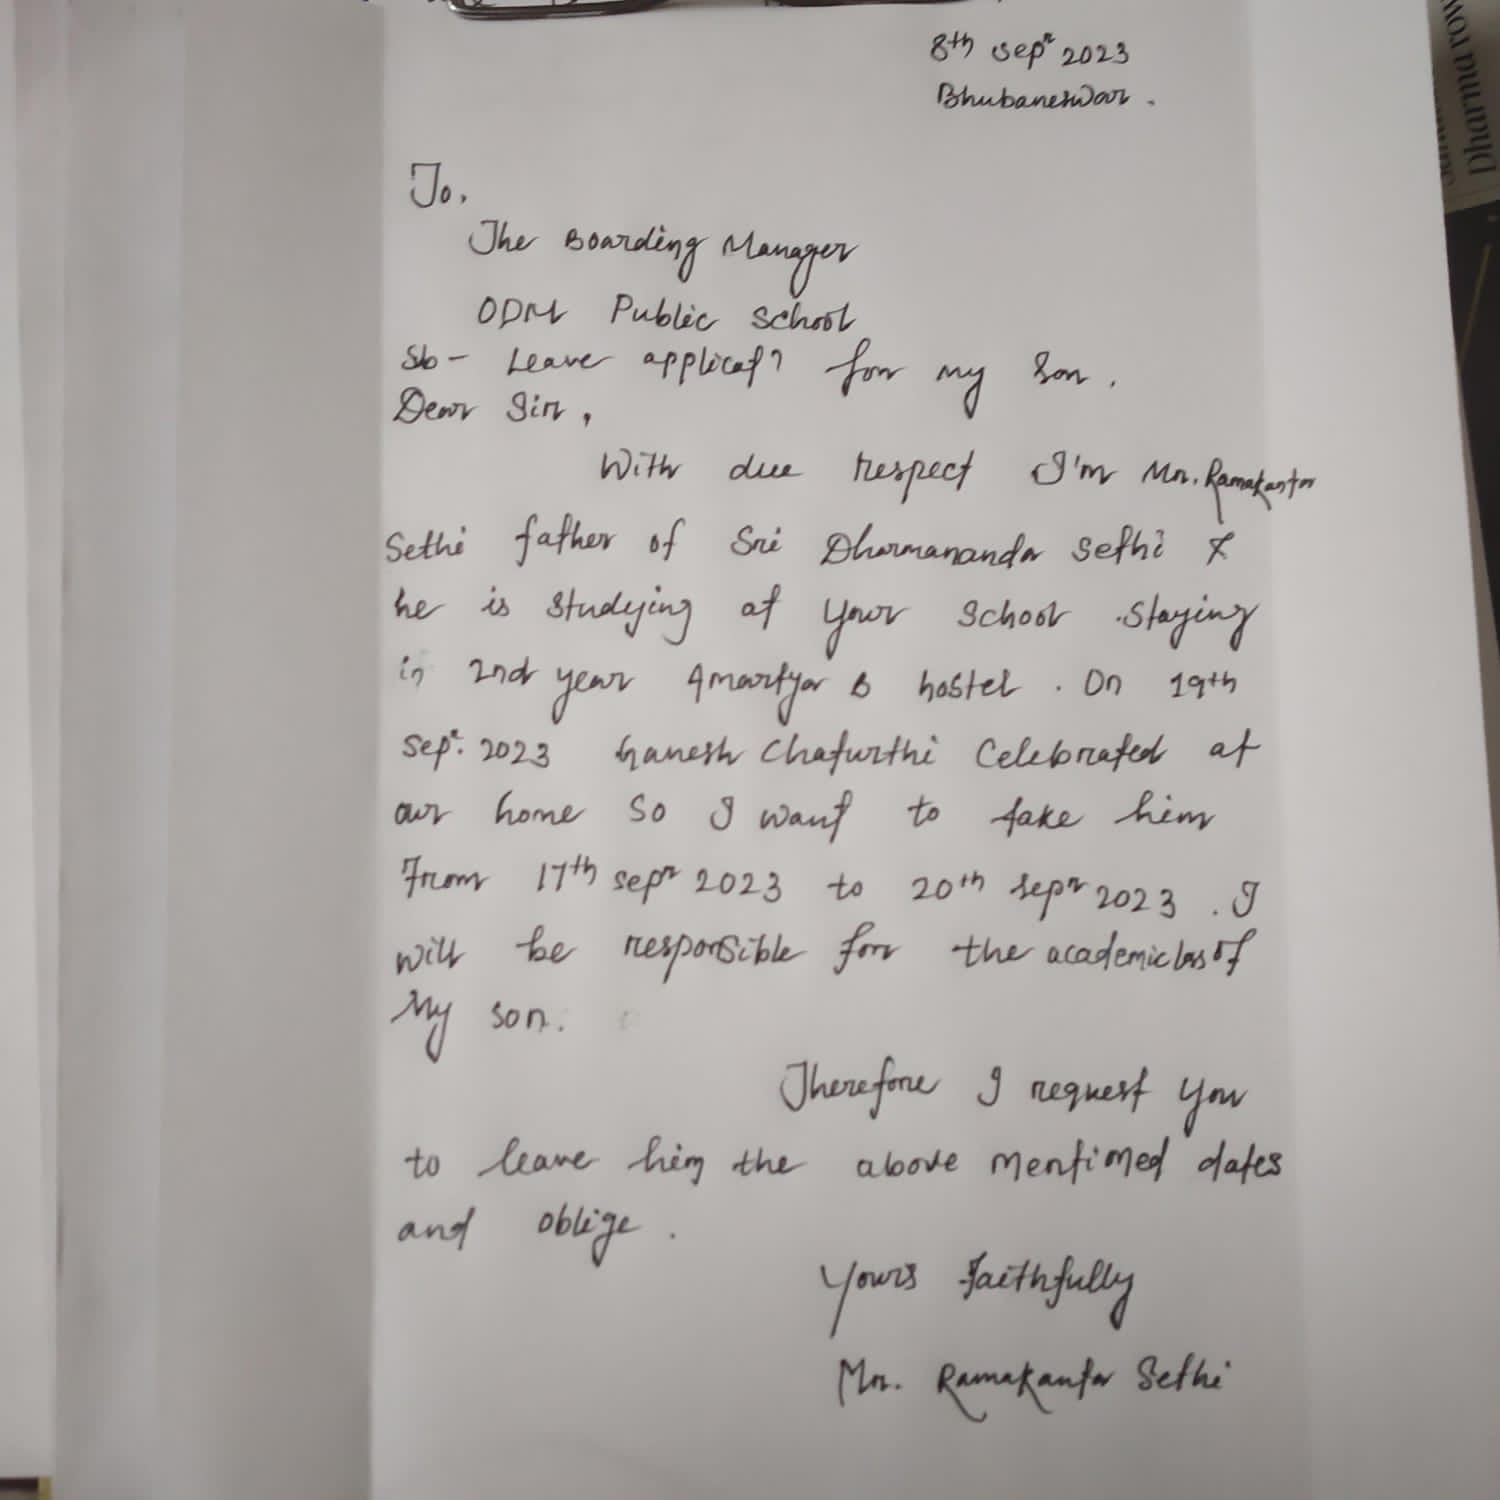 8th Sepr 2023
Bhubaneswar.
To,
The Boarding Manager
ODM Public School
Sb- Leave applicatn for my son.
Dear Sir,
With due respect I'm Mr. Ramakanta
Sethi father of Sri Dharmananda Sethi &
he is studying at your school. Staying
in 2nd year Amartya B hostel. On 19th
Sepr. 2023 Ganesh Chaturthi Celebrated at
our home so I want to take him
From 17th sepr 2023 to 20th sepr 2023. I
will be responsible for the academic loss of
My son.
Therefore I request you
to leave him the above mentioned dates
and oblige.
Yours faithfully
Mr. Ramakanta Sethi
Dharma row